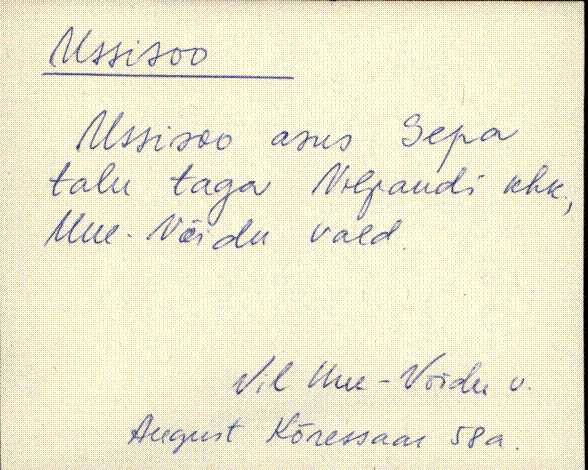 Ussisoo
Ussisoo asus Sepa
talu taga Viljandi khk.,
Uue-Võidu vald.
Vil Uue-Võidu v.
August Kõressaar 58 a.